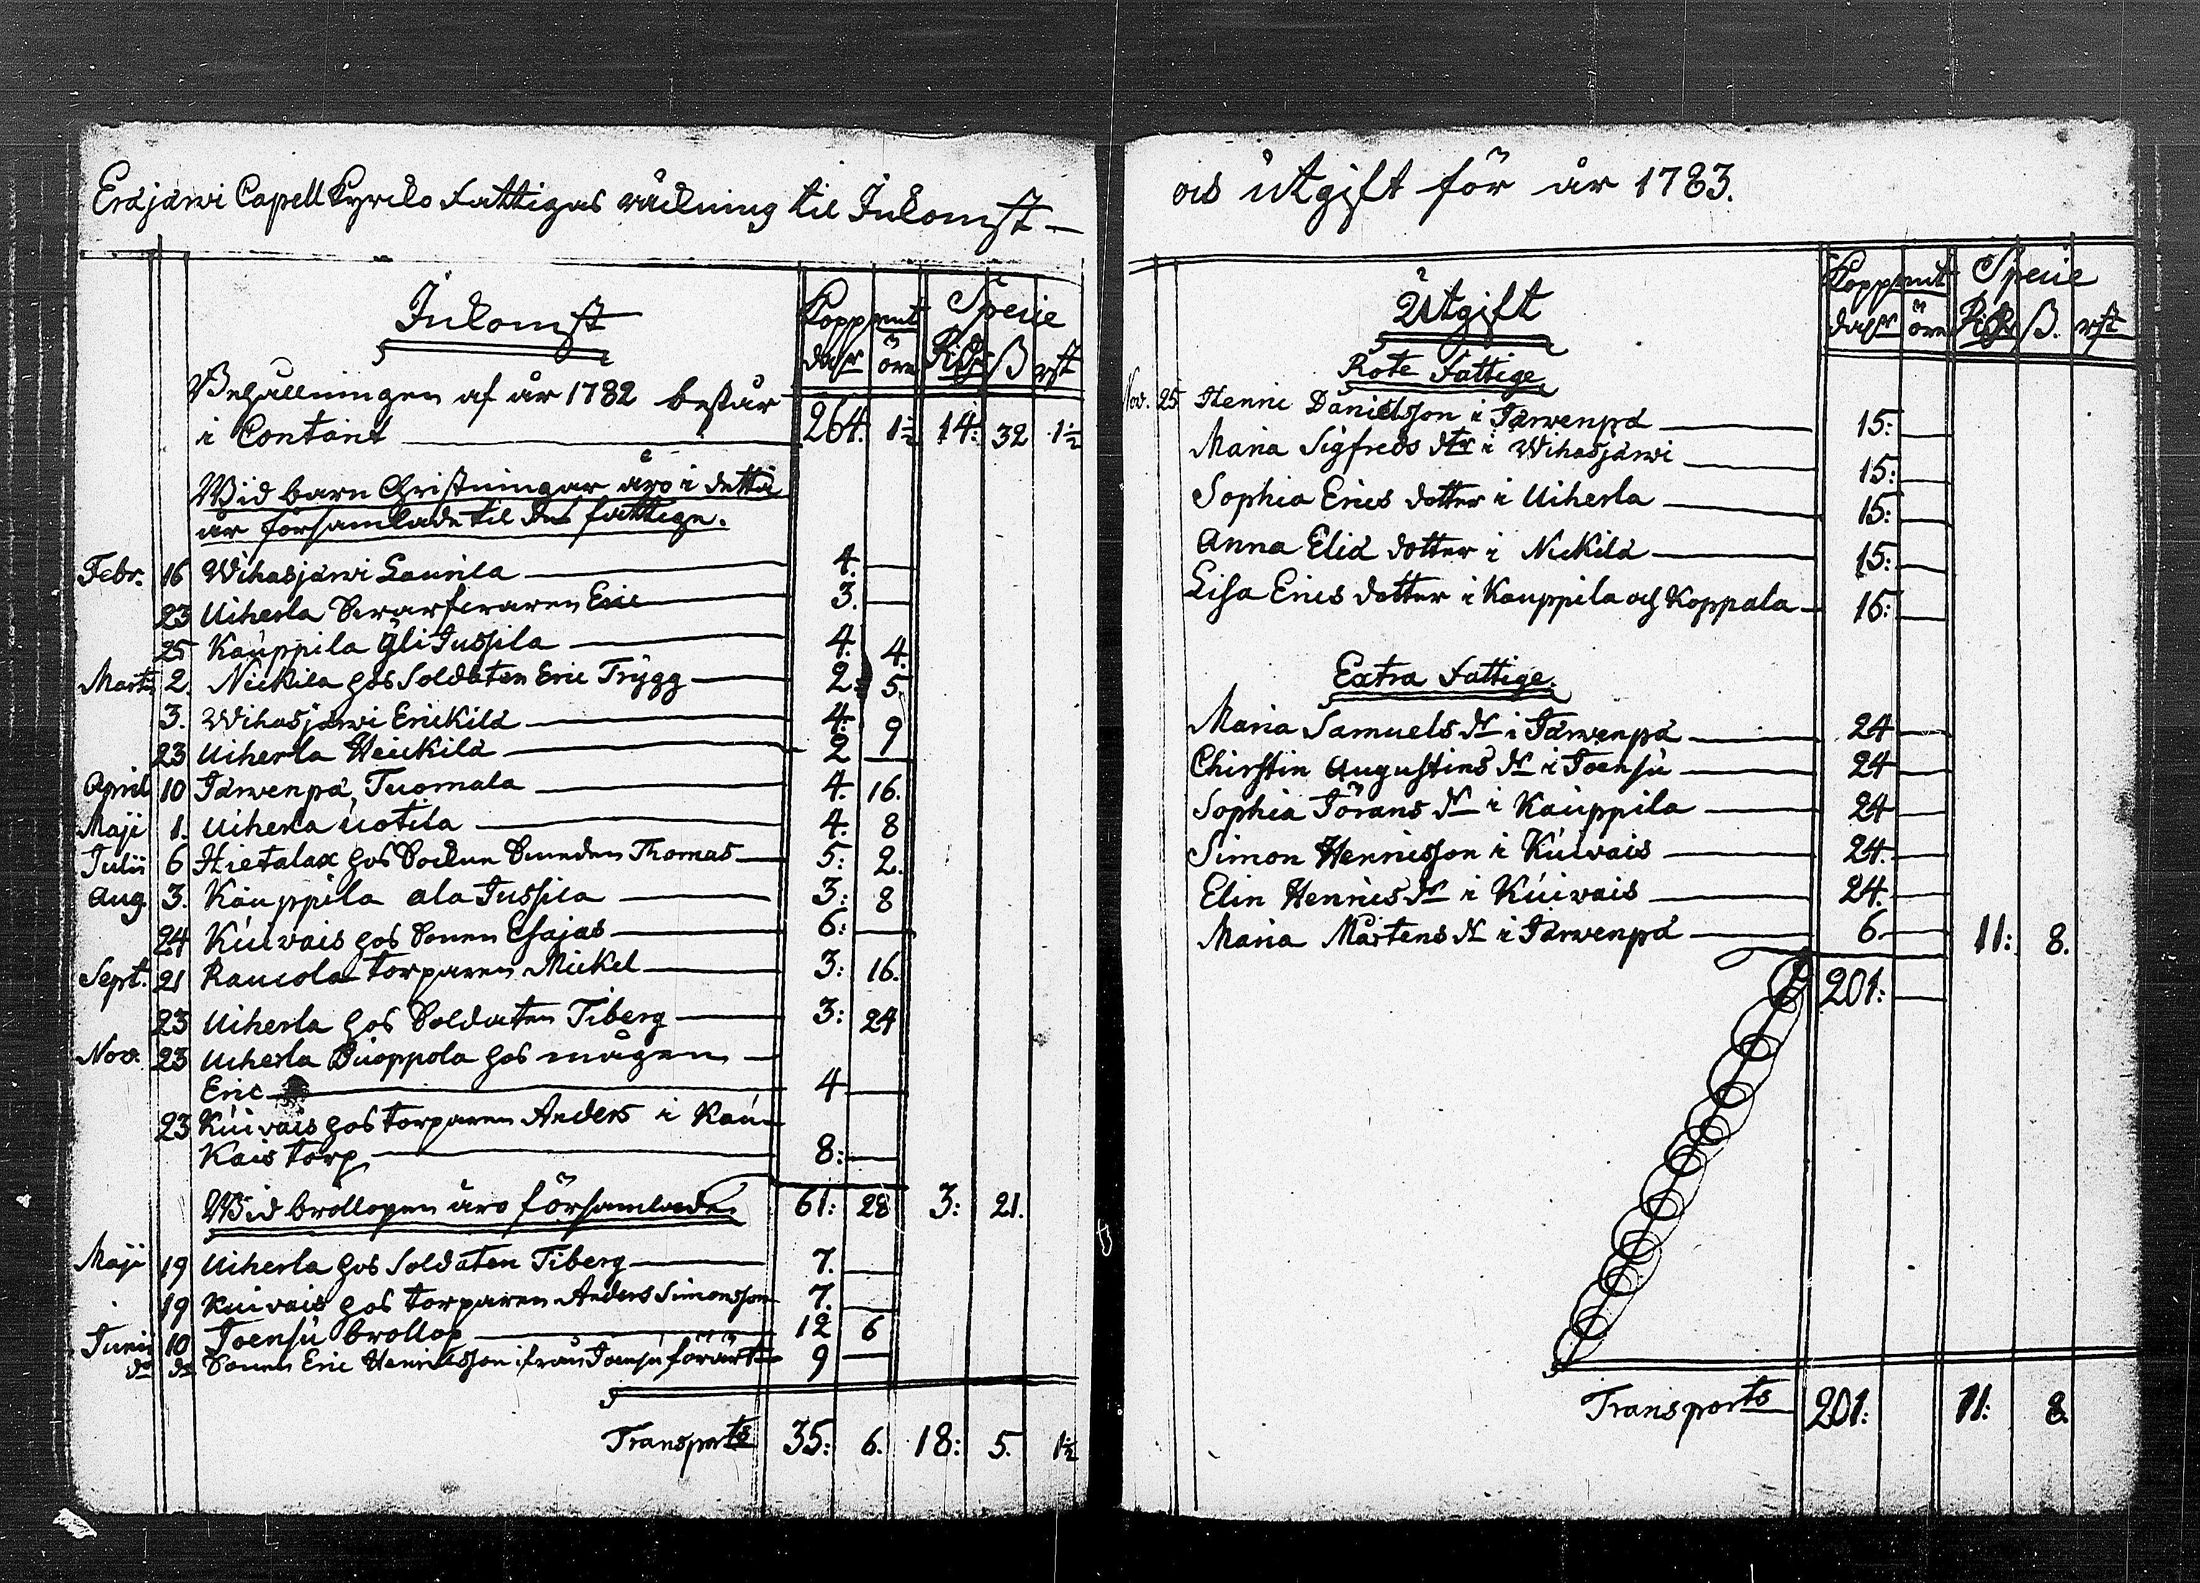 Eräjärwi Capell Kyrckio Fattigas räckning til Inkomst
Inkomst
Koppmt Specie
dalr öre Richs ß rst
Behållningen af år 1782 består
i Contant 264. 1½ 14: 32 1½
Wid barn Christningar äro i detta
år församlade til des fattige.
Febr. 16 Wihasjärwi Laurila 4.
23 Uiherla Eric 3.
25 Kauppila Yli Jussila 4. 4.
Marti 2. Nickilä hos Soldaten Eric Trygg 2: 5.
3. Wihasjärwi Erickilä 4: 9
23 Uiherla Heickilä 2
April 10 Järwenpä, Tuomala 4. 16.
Maji 1. Uiherla Uotila 4. 8
Julii 6 Hietalax hos Sockne Smeden Thomas 5: 2.
Aug 3. Kauppila ala Jussila 3: 8
24 Kuivais hos Sonen Esajas 6:
Sept. 21 Raucola torparen Mickel 3: 16.
23 Uiherla hos Soldaten Tiberg 3: 24
Nov. 23 Uiherla Puoppola hos mågen
Eric 4
23 Kuivais hos torparen Anders i Kau-
Kais torp 8:
Wid brollopen äro församlade 61: 28 3: 21.
Maji 19 Uiherla hos Soldaten Tiberg 7.
19 Kuivais hos torparen Anders Simonsson 7.
Junii 10 Joensu brollop 12 6
do do Sonen Eric Henricksson ifrån Joensu förärt 9
Transports 35: 6. 18: 5. 1½
och utgift för år 1783.
Utgift
Koppmt Specie
dalr öre Richs ß. rst
Rote Fattige
Nov. 25 Henric Danielsson i Järwenpä 15:
Maria Sigfreds dtr i Wihasjärwi 15:
Sophia Erics dotter i Uiherla 15:
Anna Eliä dotter i Nickilä 15:
Lisa Erics dotter i Kauppila och Koppala 15:
Extra Fattige.
Maria Samuels dr i Järwenpä 24
Chirstin Augustins dr i Joensu 24
Sophia Jörans dr i Kauppila 24
Simon Henricsson i Kuivais 24.
Elin Henrics dr i Kuivais 24.
Maria Mårtens dr i Järwenpä 6. 11: 8.
201:
Transports 201: 11: 8.